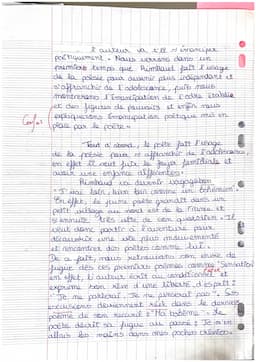 l'auteur va t-il s'émanciper
poétiquement. Nous verrons dans un
premiers temps que Rimbaud fait l'usage
de la poésie pour devenir plus indépendant et
s'affranchir de l'adolescence, puis nous
montrerons l'émancipation de l'ordre établie
et des figures de pouvoirs et enfin nous
expliquerons l'émancipation poétique mis en
place par le poète.
Tout d'abord, le poète fait l'usage
de la poésie pour s'affranchir de l'adolescence,
en effet il veut fuir le foyer familiale et
avoir une enfance différente.
Rimbaud va devenir vagabon
"J'irai loin, bien loin comme un bohémien".
En effet, le jeune poète grandit dans un
petit village au nord est de la France et
s'ennuie très vite de son quotidien. Il
veut donc partir à l'aventure pour
découvrir une vie plus mouvementé
et rencontrer des poètes comme lui.
De a fait, nous retrouvons son envie de
fugue dès ces premières poèmes comme "Sensation"
en effet, l'auteur écrit au conditionnel et
exprime son rêve d'une liberté d'esprit :
"Je ne parlerai, Je ne penserai pas". Ses
excursions deviennent réel dans le dernier
poème de son recueil "Ma bohème". Le
poète décrit sa fugue au passé : Je m'en
allais les mains dans mes poches crevées.